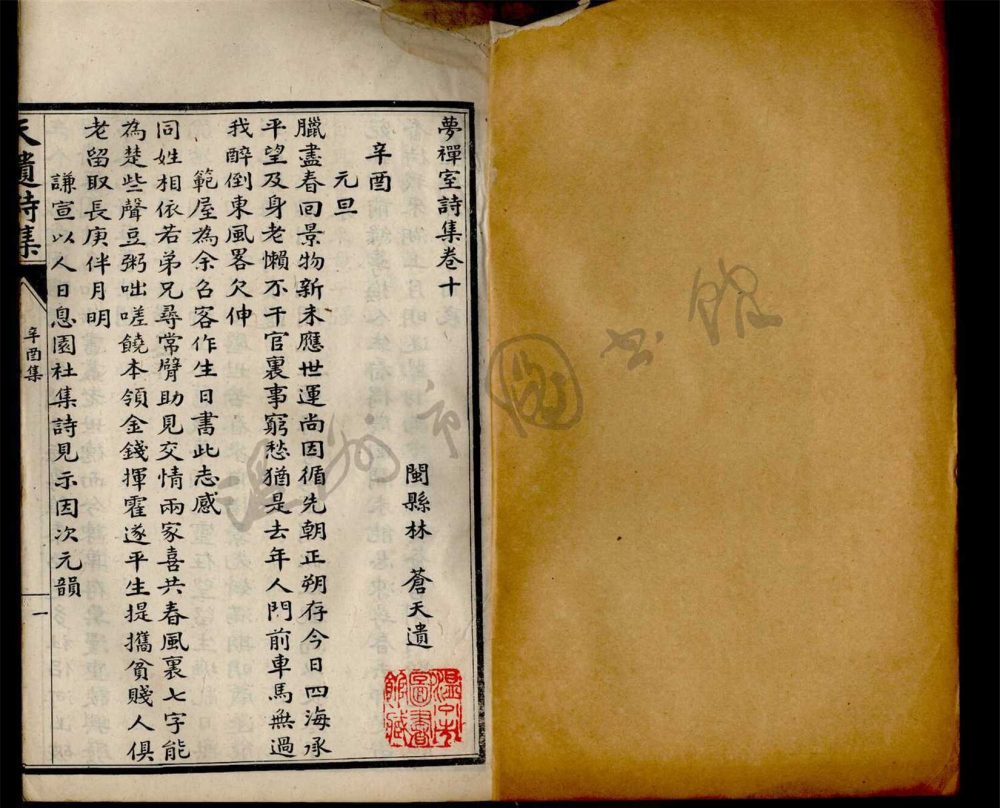 夢禪室詩集卷十
閩縣林 蒼天遺
辛酉
元旦
臘盡春回景物新未應世運尚因循先朝正朔存今日四海承
平望及身老懶不干官裏事窮愁猶是去年人門前車馬無過
我醉倒東風畧欠伸
範屋為余召客作生日書此志感
同姓相依若弟兄尋常臂助見交情兩家喜共春風裏七字能
為楚些聲豆粥咄嗟饒本領金錢揮霍遂平生提攜貧賤人俱
老留取長庚伴月明
謙宣以人日息園社集詩見示因次元韻
天遺詩集
辛酉集
一
溫州市
圖書
館藏
溫州市圖書館